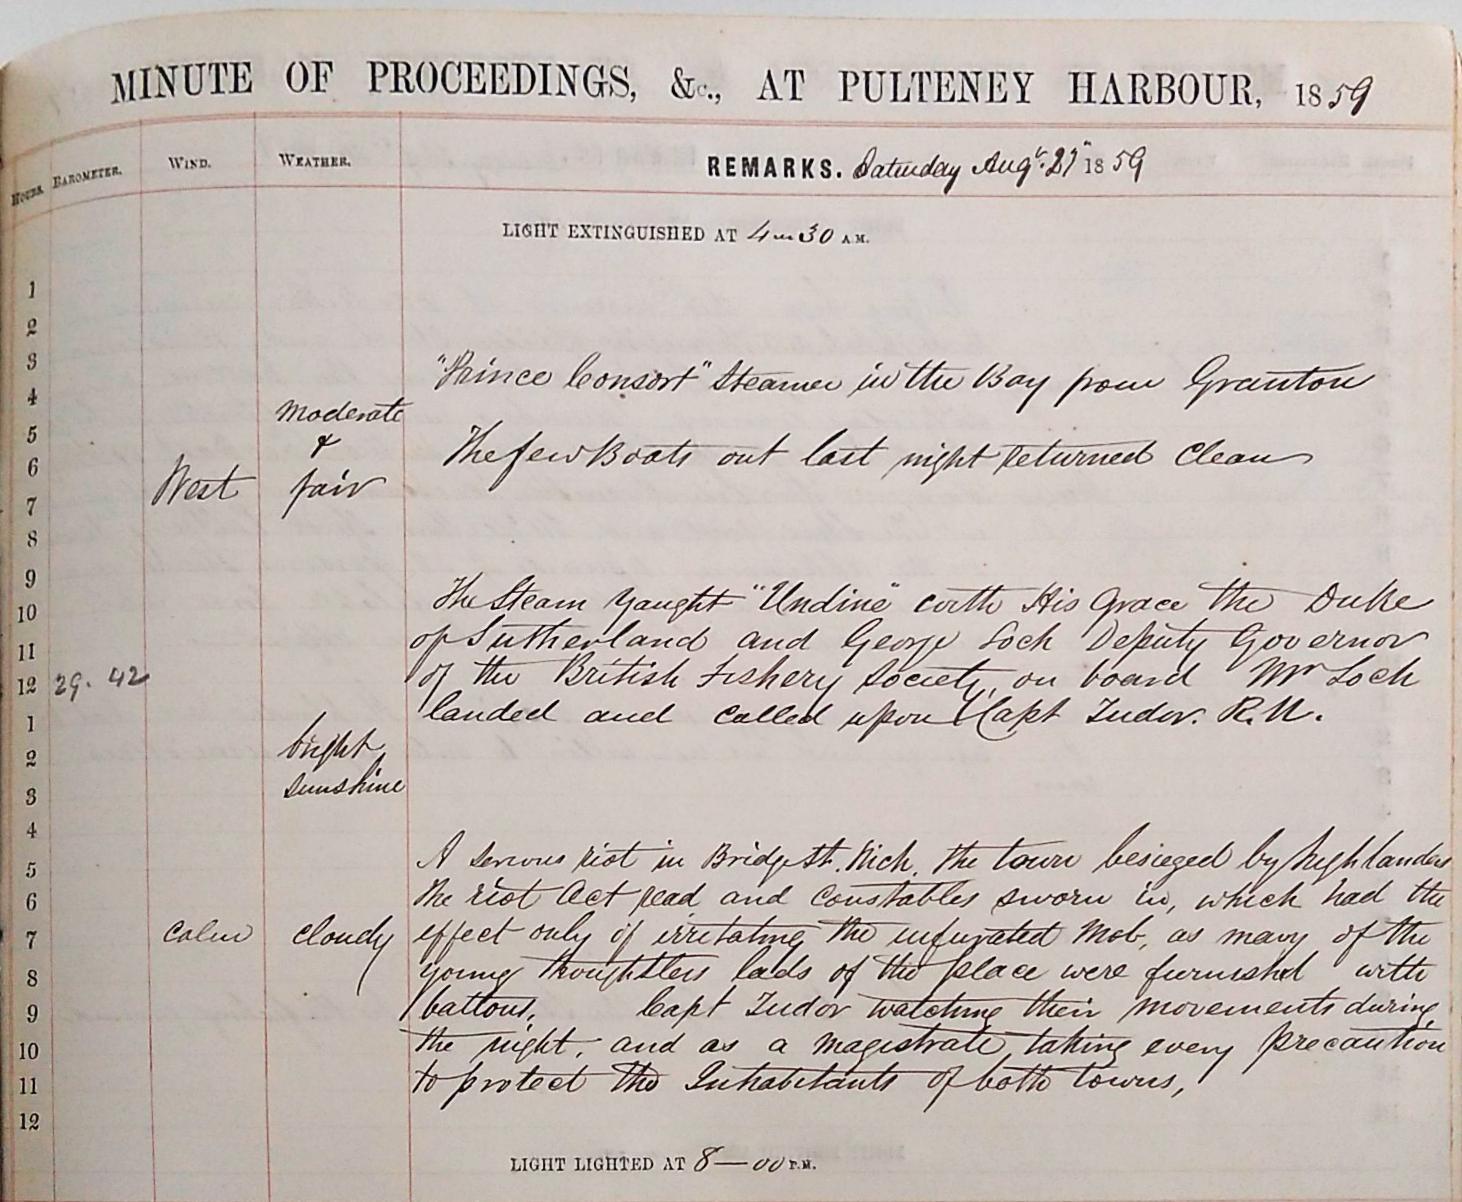 MINUTE OF PROCEEDINGS, &c., AT PULTENEY HARBOUR, 1859
HOURS. BAROMETER. WIND. WEATHER. REMARKS. Saturday Augt. 27th 1859
LIGHT EXTINGUISHED AT 4-30 A.M.
1
2
3
"Prince Consort" Steamer in the Bay from Granton
4
moderate
5
&
The few Boats out last night returned Clean
6
West fair
7
8
9
The Steam Yaught "Undine" with His Grace the Duke
10
of Sutherland and George Loch Deputy Governor
11
of the British Fishery Society, on board Mr Loch
12 29. 42
landed and called upon Capt Tudor. R.N.
1
bright
2
sunshine
3
4
A serious riot in Bridge St. Wick. the town besiezed by highlanders
5
the riot Act read and Constables sworn in, which had the
6
effect only of irritating the infurated Mob, as many of the
7 calm cloudy
young thoughtless lads of the place were furnished with
8
battons, Capt Tudor watching their movements during
9
the night. and as a magistrate, taking every precaution
10
to protect the Inhabitants of both towns,
11
12
LIGHT LIGHTED AT 8-00 P.M.